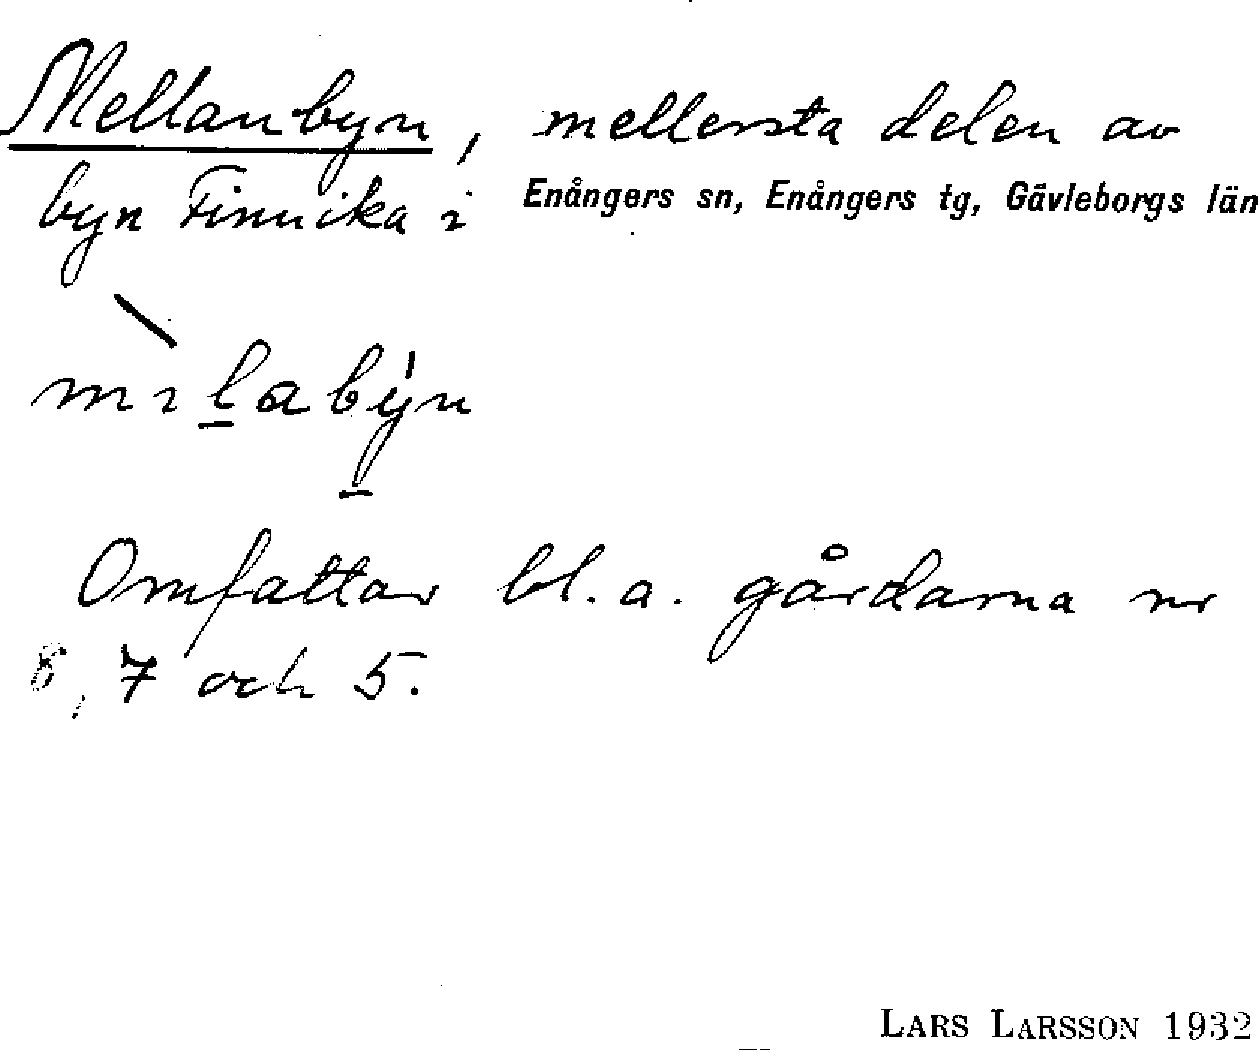 Mellanbyn, mellersta delen av
byn Finnika i Enångers sn, Enångers tg, Gävleborgs län
mılabýn
Omfattar bl. a. gårdarna nr
6, 7 och 5.
LARS LARSSON 1932